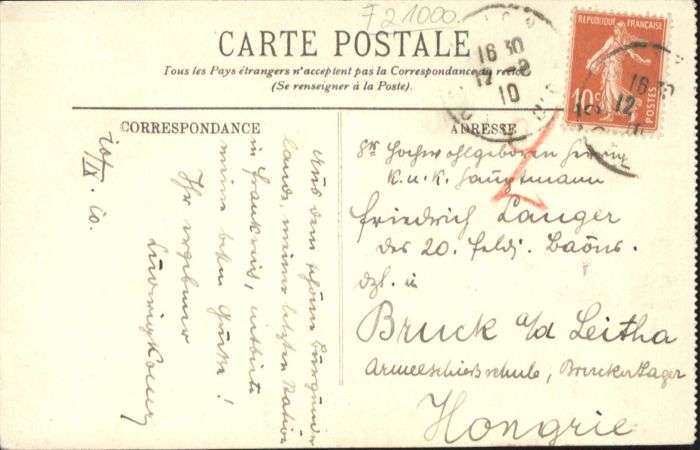 F21000.
CARTE POSTALE
Tous les Pays étrangers n'acceptent pas la Correspondance au recto
(Se renseigner à la Poste).
CORRESPONDANCE
ADRESSE
RÉPUBLIQUE FRANÇAISE
10c
POSTES
16 30
12 - 9
10
16 30
12
Aus dem schönen Burgunder
lande, meiner letzten Station
in Frankreich, entbiete
meine besten Grüsse!
Ihr ergebener
Ludwig
10/IX. 10.
Sr Hochwohlgeboren Herrn
K.u.K. Hauptmann
Friedrich Langer
des 20. Feldj. Baons.
dzt. in
Bruck a/d Leitha
Armeeschiessschule, Brucker Lager
Hongrie